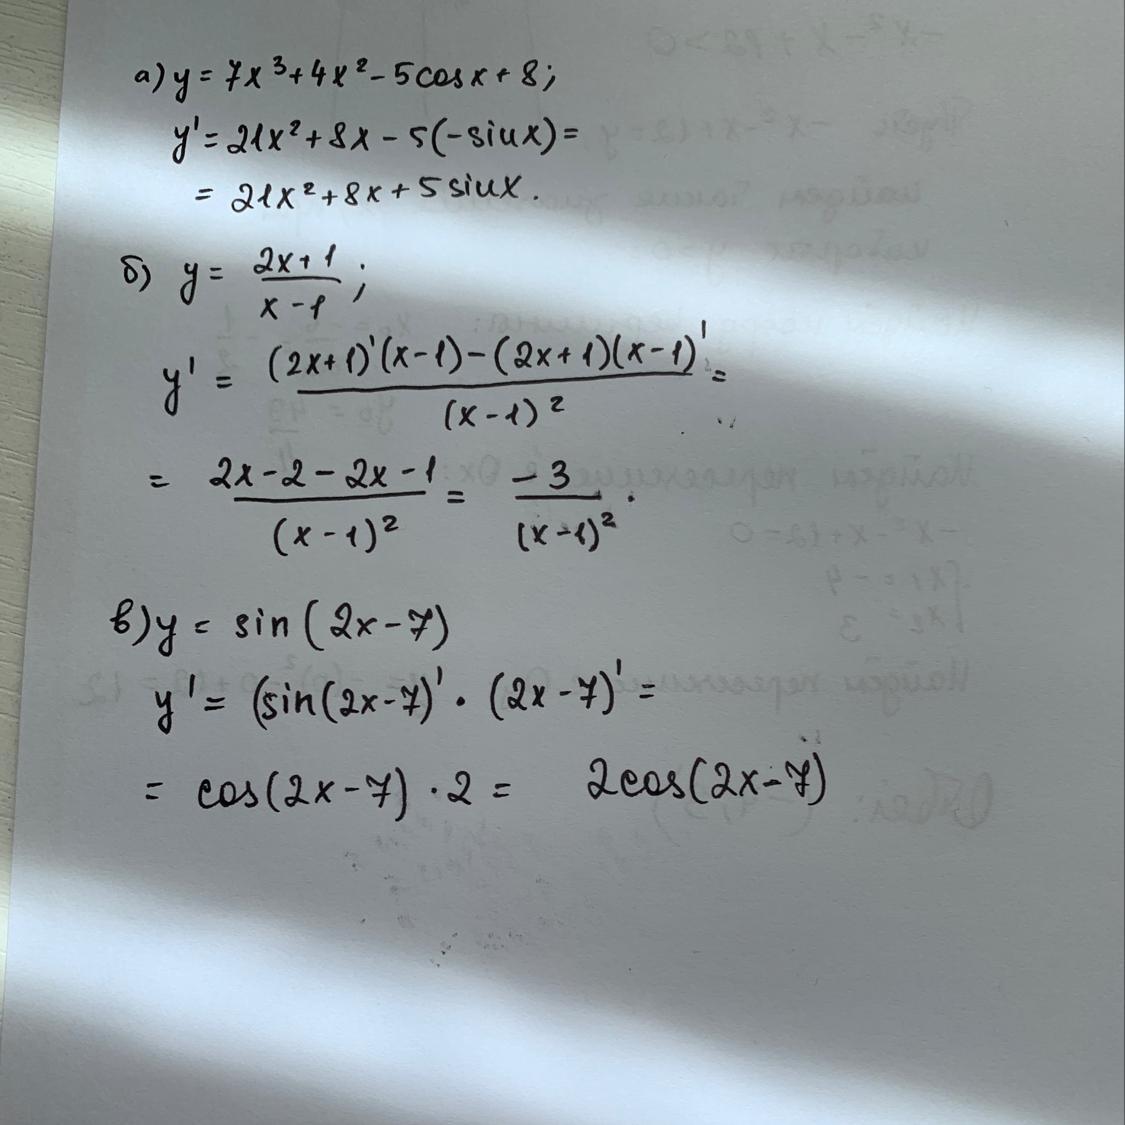 а) y = 7x³ + 4x² - 5cosx + 8;
y' = 21x² + 8x - 5(-sinx) =
= 21x² + 8x + 5 sinx.
б) y = (2x+1)/(x-1);
y' = ((2x+1)'(x-1) - (2x+1)(x-1)')/(x-1)² =
= (2x-2-2x-1)/(x-1)² = -3/(x-1)².
в) y = sin(2x-7)
y' = (sin(2x-7)' · (2x-7)' =
= cos(2x-7) · 2 = 2cos(2x-7)